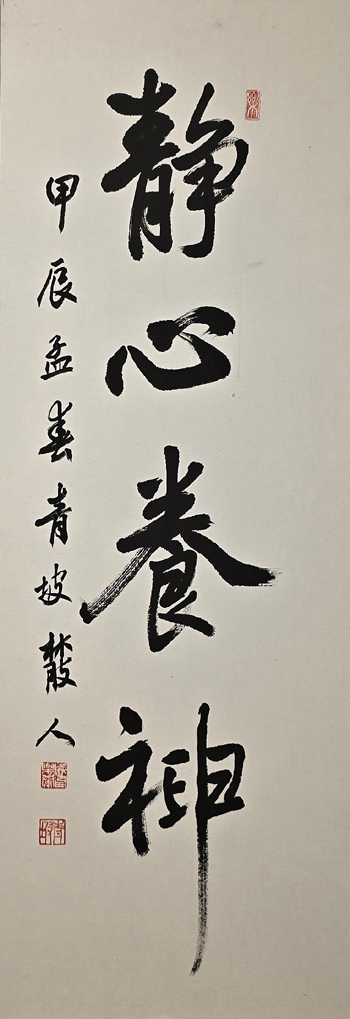 静心養神
甲辰孟春青坡散人